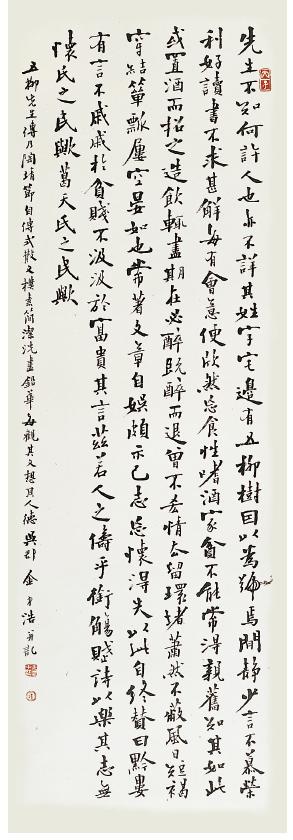 先生不知何許人也亦不詳其姓字宅邊有五柳樹因以為號焉閒靜少言不慕榮
利好讀書不求甚解每有會意便欣然忘食性嗜酒家貧不能常得親舊知其如此
或置酒而招之造飲輒盡期在必醉既醉而退曾不吝情去留環堵蕭然不蔽風日短褐
穿結簞瓢屢空晏如也常著文章自娛頗示己志忘懷得失以此自終贊曰黔婁
有言不戚戚於貧賤不汲汲於富貴其言茲若人之儔乎銜觴賦詩以樂其志無
懷氏之民歟葛天氏之民歟
五柳先生傳乃陶靖節自傳式散文樸素簡潔洗盡鉛華每觀其文想其人德吳郡金
浩并記